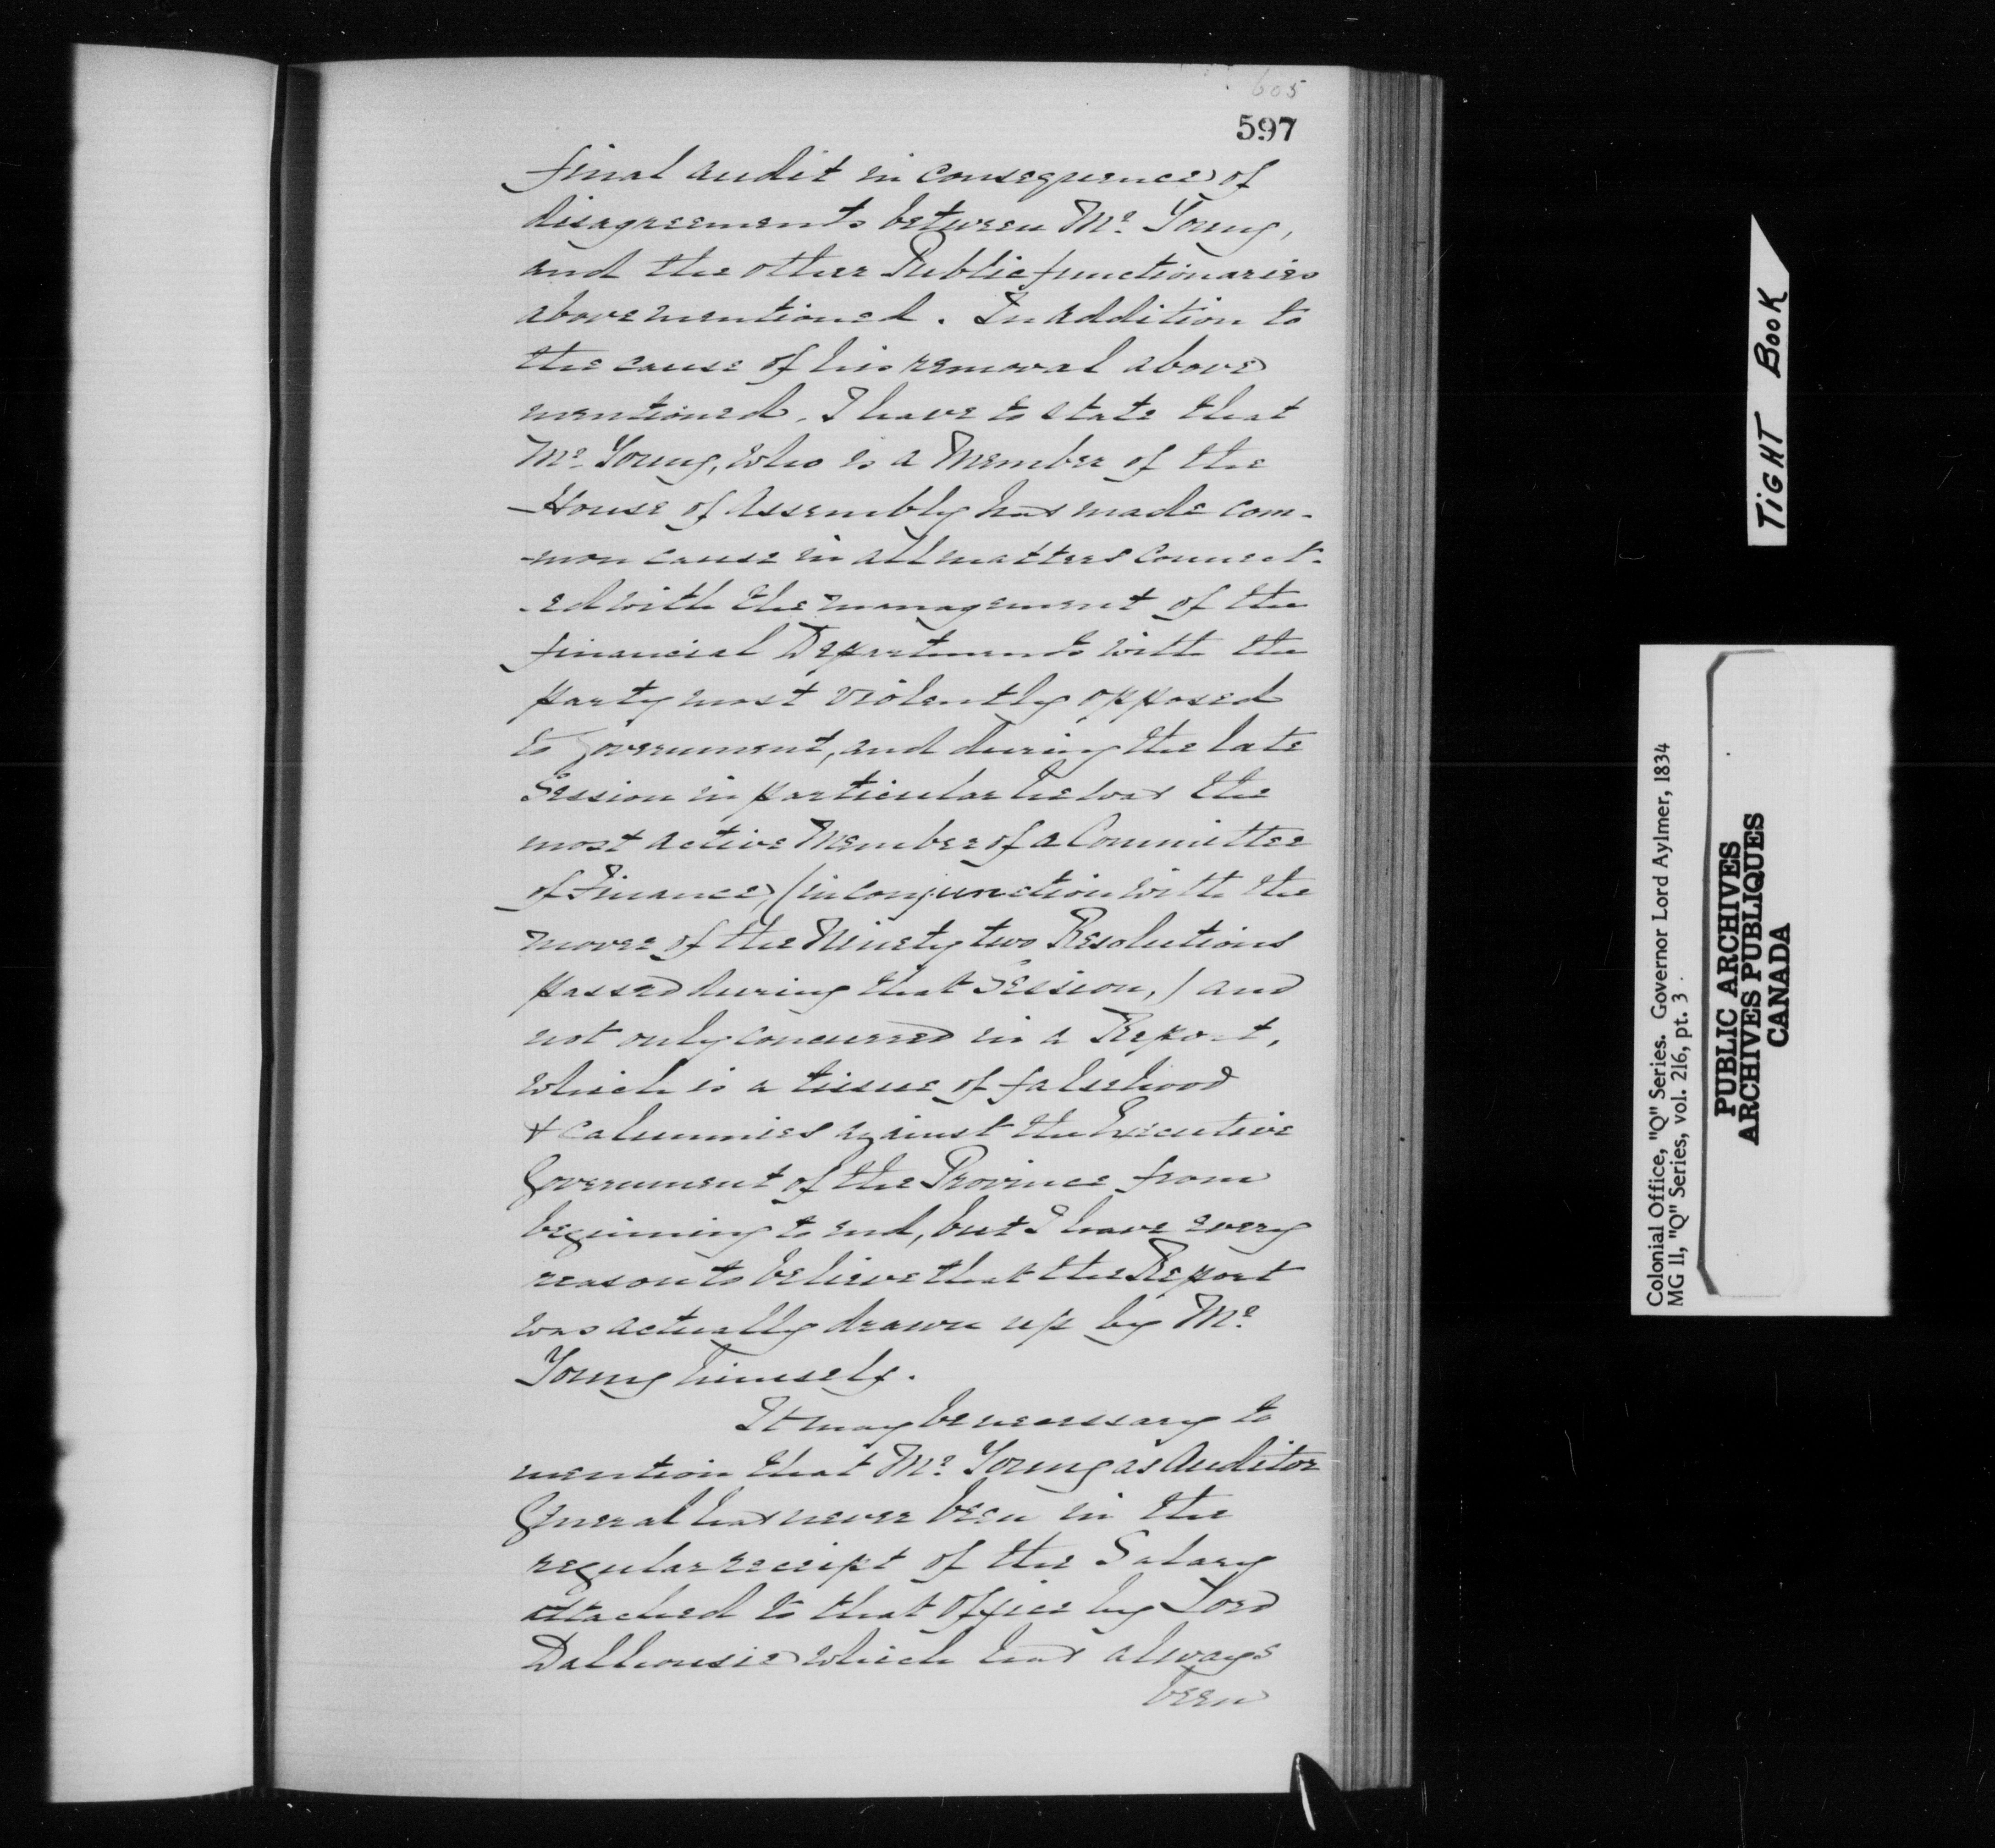 605
597
final audit in consequence of
disagreements between Mr. Young,
and the other Public functionaries
above mentioned. In addition to
the cause of his removal above
mentioned, I have to state that
Mr. Young, who is a Member of the
House of Assembly has made com-
-mon cause in all matters connect-
-ed with the management of the
financial Departments with the
party most violently opposed
to Government, and during the late
Session in particular he was the
most active Member of a Committee
of Finance, (in conjunction with the
mover of the Ninety two Resolutions
passed during that Session,) and
not only concurred in a Report,
which is a tissue of falsehood
& calumnies against the Executive
Government of the Province from
beginning to end, but I have every
reason to believe that the Report
was actually drawn up by Mr.
Young himself.
It may be necessary to
mention that Mr. Young as Auditor
General has never been in the
regular receipt of the Salary
attached to that Office by Lord
Dalhousie which has always
been
TIGHT BOOK
Colonial Office, "Q" Series. Governor Lord Aylmer, 1834
MG 11, "Q" Series, vol. 216, pt. 3
PUBLIC ARCHIVES
ARCHIVES PUBLIQUES
CANADA